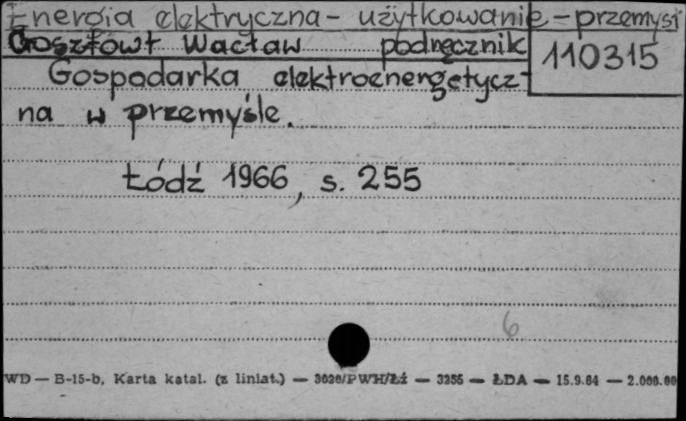 Energia elektryczna - użytkowanie - przemysł
Gosztowt Wacław podręcznik
110315
Gospodarka elektroenergetycz-
na w przemyśle.
Łódź 1966, s. 255
6
WD — B-15-b, Karta katal. (z liniat.) — 3020/PWH/Łź — 3255 — ŁDA — 15.9.64 — 2.000.00